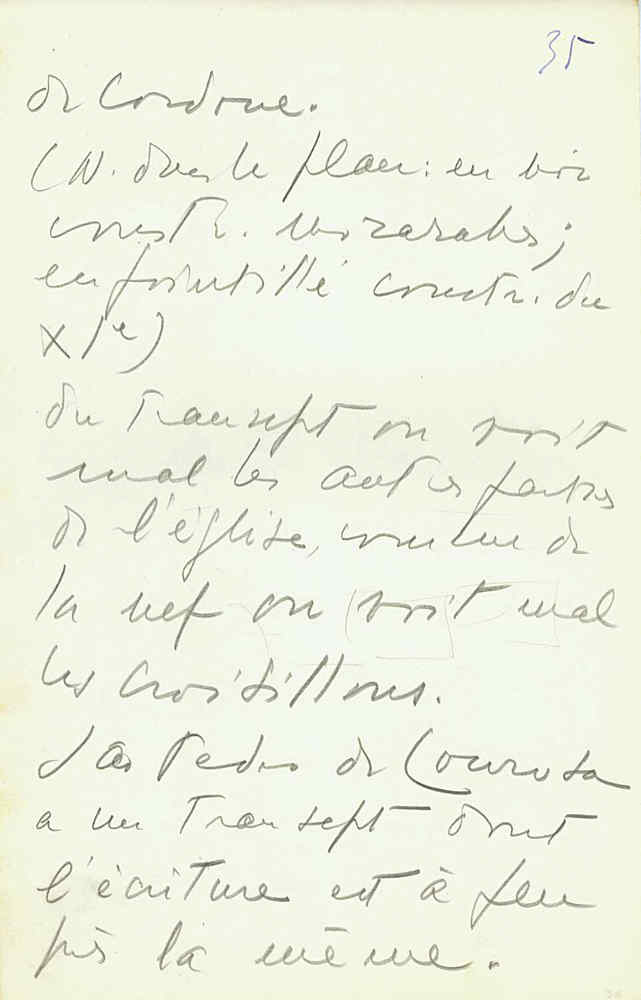 35
de Cordoue.
(N. dans le plan : en noir
constr. mozarabes ;
en pointillé constr. du
XIe)
Du transept on voit
mal les autres parties
de l'église, comme de
la nef on voit mal
les croisillons.
São Pedro de Lourosa
a un transept dont
l'écriture est à peu
près la même.